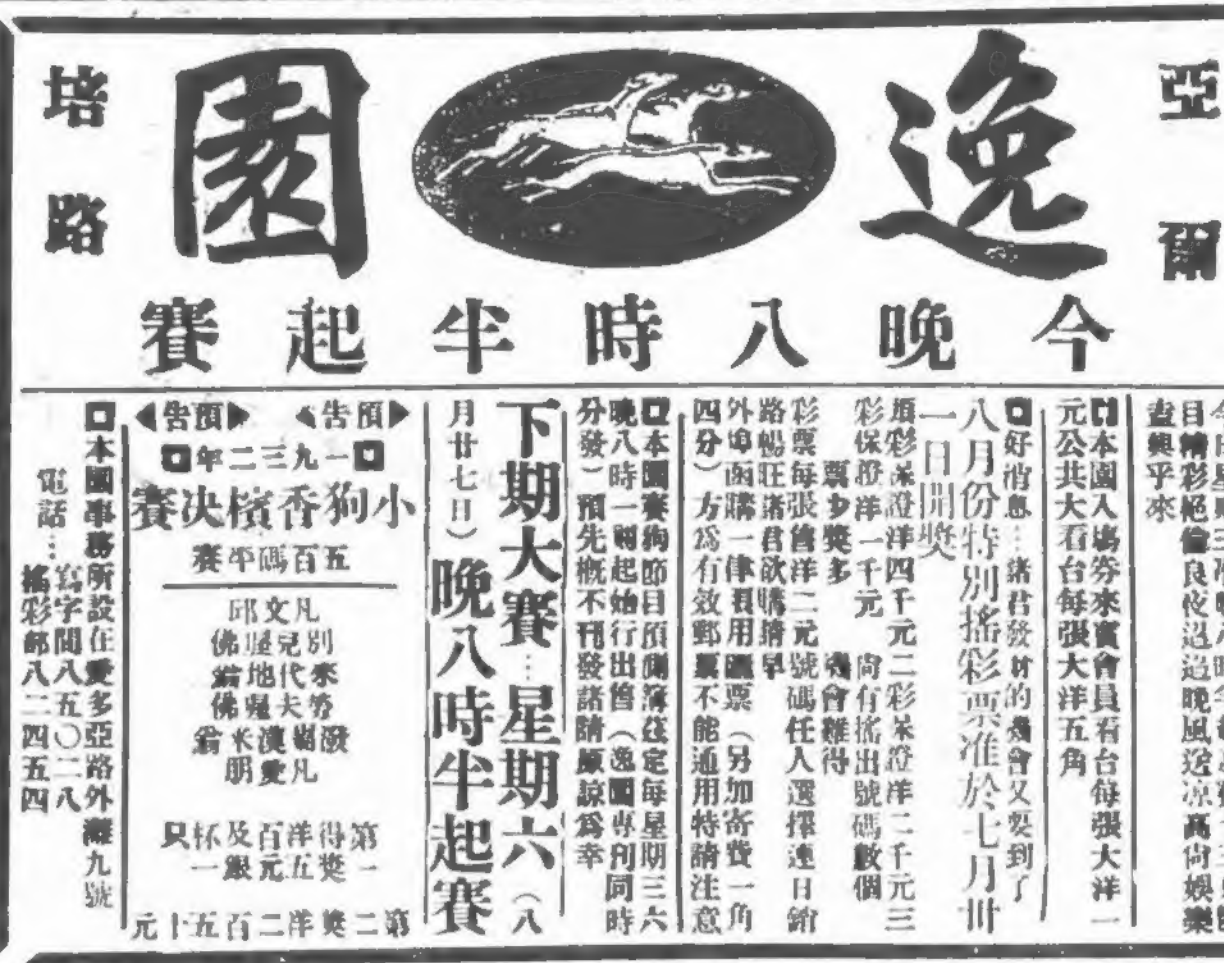 亞爾
逸園
培路
今晚八時半起賽
目精彩絕倫良夜迢迢晚風送涼高尚娛樂
盡興乎來
本園入場券來賓會員看台每張大洋一
元公共大看台每張大洋五角
好消息…諸君發財的機會又要到了
八月份特別搖彩票准於七月卅
一日開獎
頭彩保證洋四千元二彩保證洋二千元三
彩保證洋一千元 尚有搖出號碼數個
票多獎多 機會難得
彩票每張售洋二元號碼任人選擇連日銷
路暢旺諸君欲購請早
外埠函購一律須用匯票（另加寄費一角
四分）方為有效郵票不能通用特請注意
本園賽狗節目預測簿茲定每星期三六
晚八時一刻起始行出售（逸園專刊同時
分發）預先概不刊發諸請原諒爲幸
下期大賽…星期六（八
月廿七日）晚八時半起賽
預告 預告
一九三二年
小狗香檳決賽
五百碼平賽
凡文邱
別兒屋佛
來代地翁
勞夫屋佛
漢米翁
凡愛明
第一得獎洋五百元及銀杯一只
第二獎洋二百五十元
本園事務所設在愛多亞路外灘九號
電話…寫字間八五〇二八
搖彩部八二四五四